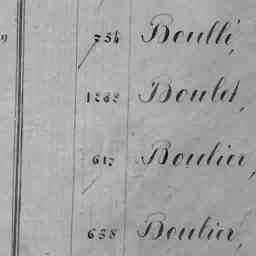 754 Boulli,
1262 Boulet,
617 Boulier,
638 Boulier,